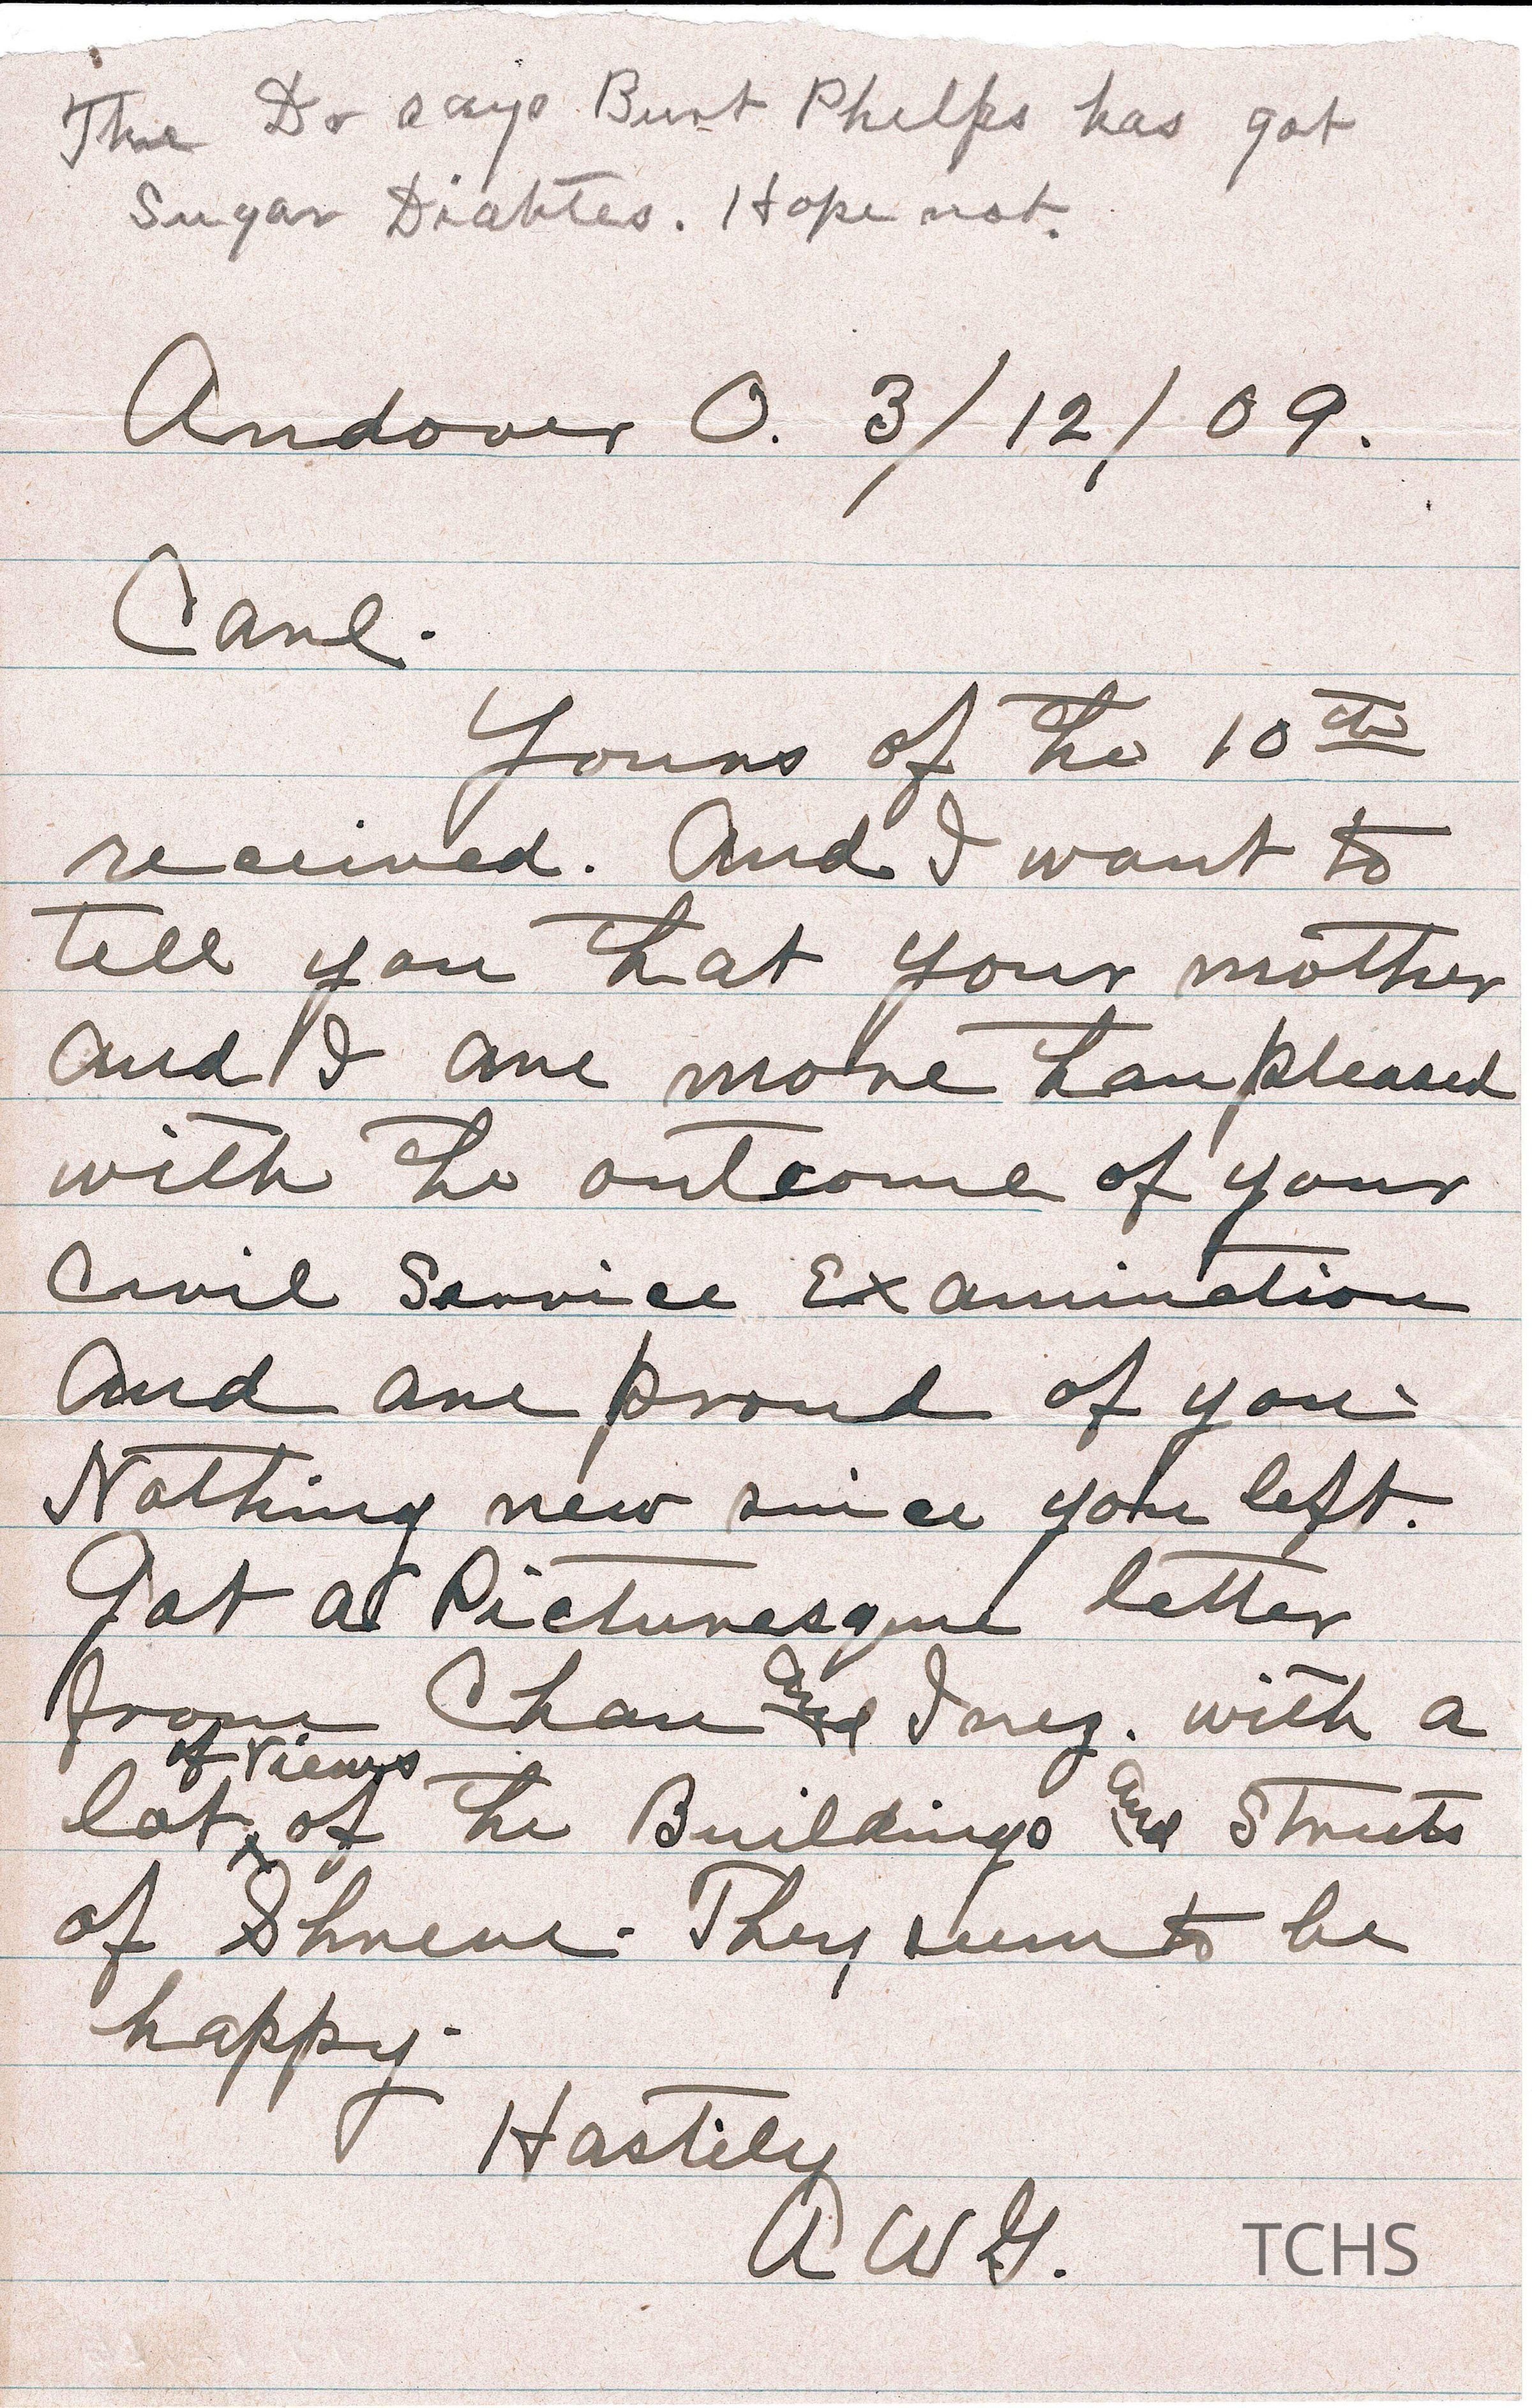 The Dr says Burt Phelps has got
Sugar Diabtes. Hope not.
Andover O. 3/12/09.
Carl.
Yours of the 10th
received. And I want to
tell you that your mother
and I are more than pleased
with the outcome of your
Civil Service Examination
And are proud of you.
Nothing new since you left.
Got a Picturesque letter
from Chan and Inez. with a
of views
lot of the Buildings and Streets
of Shreve. They seem to be
happy.
Hastily
A W G.
TCHS